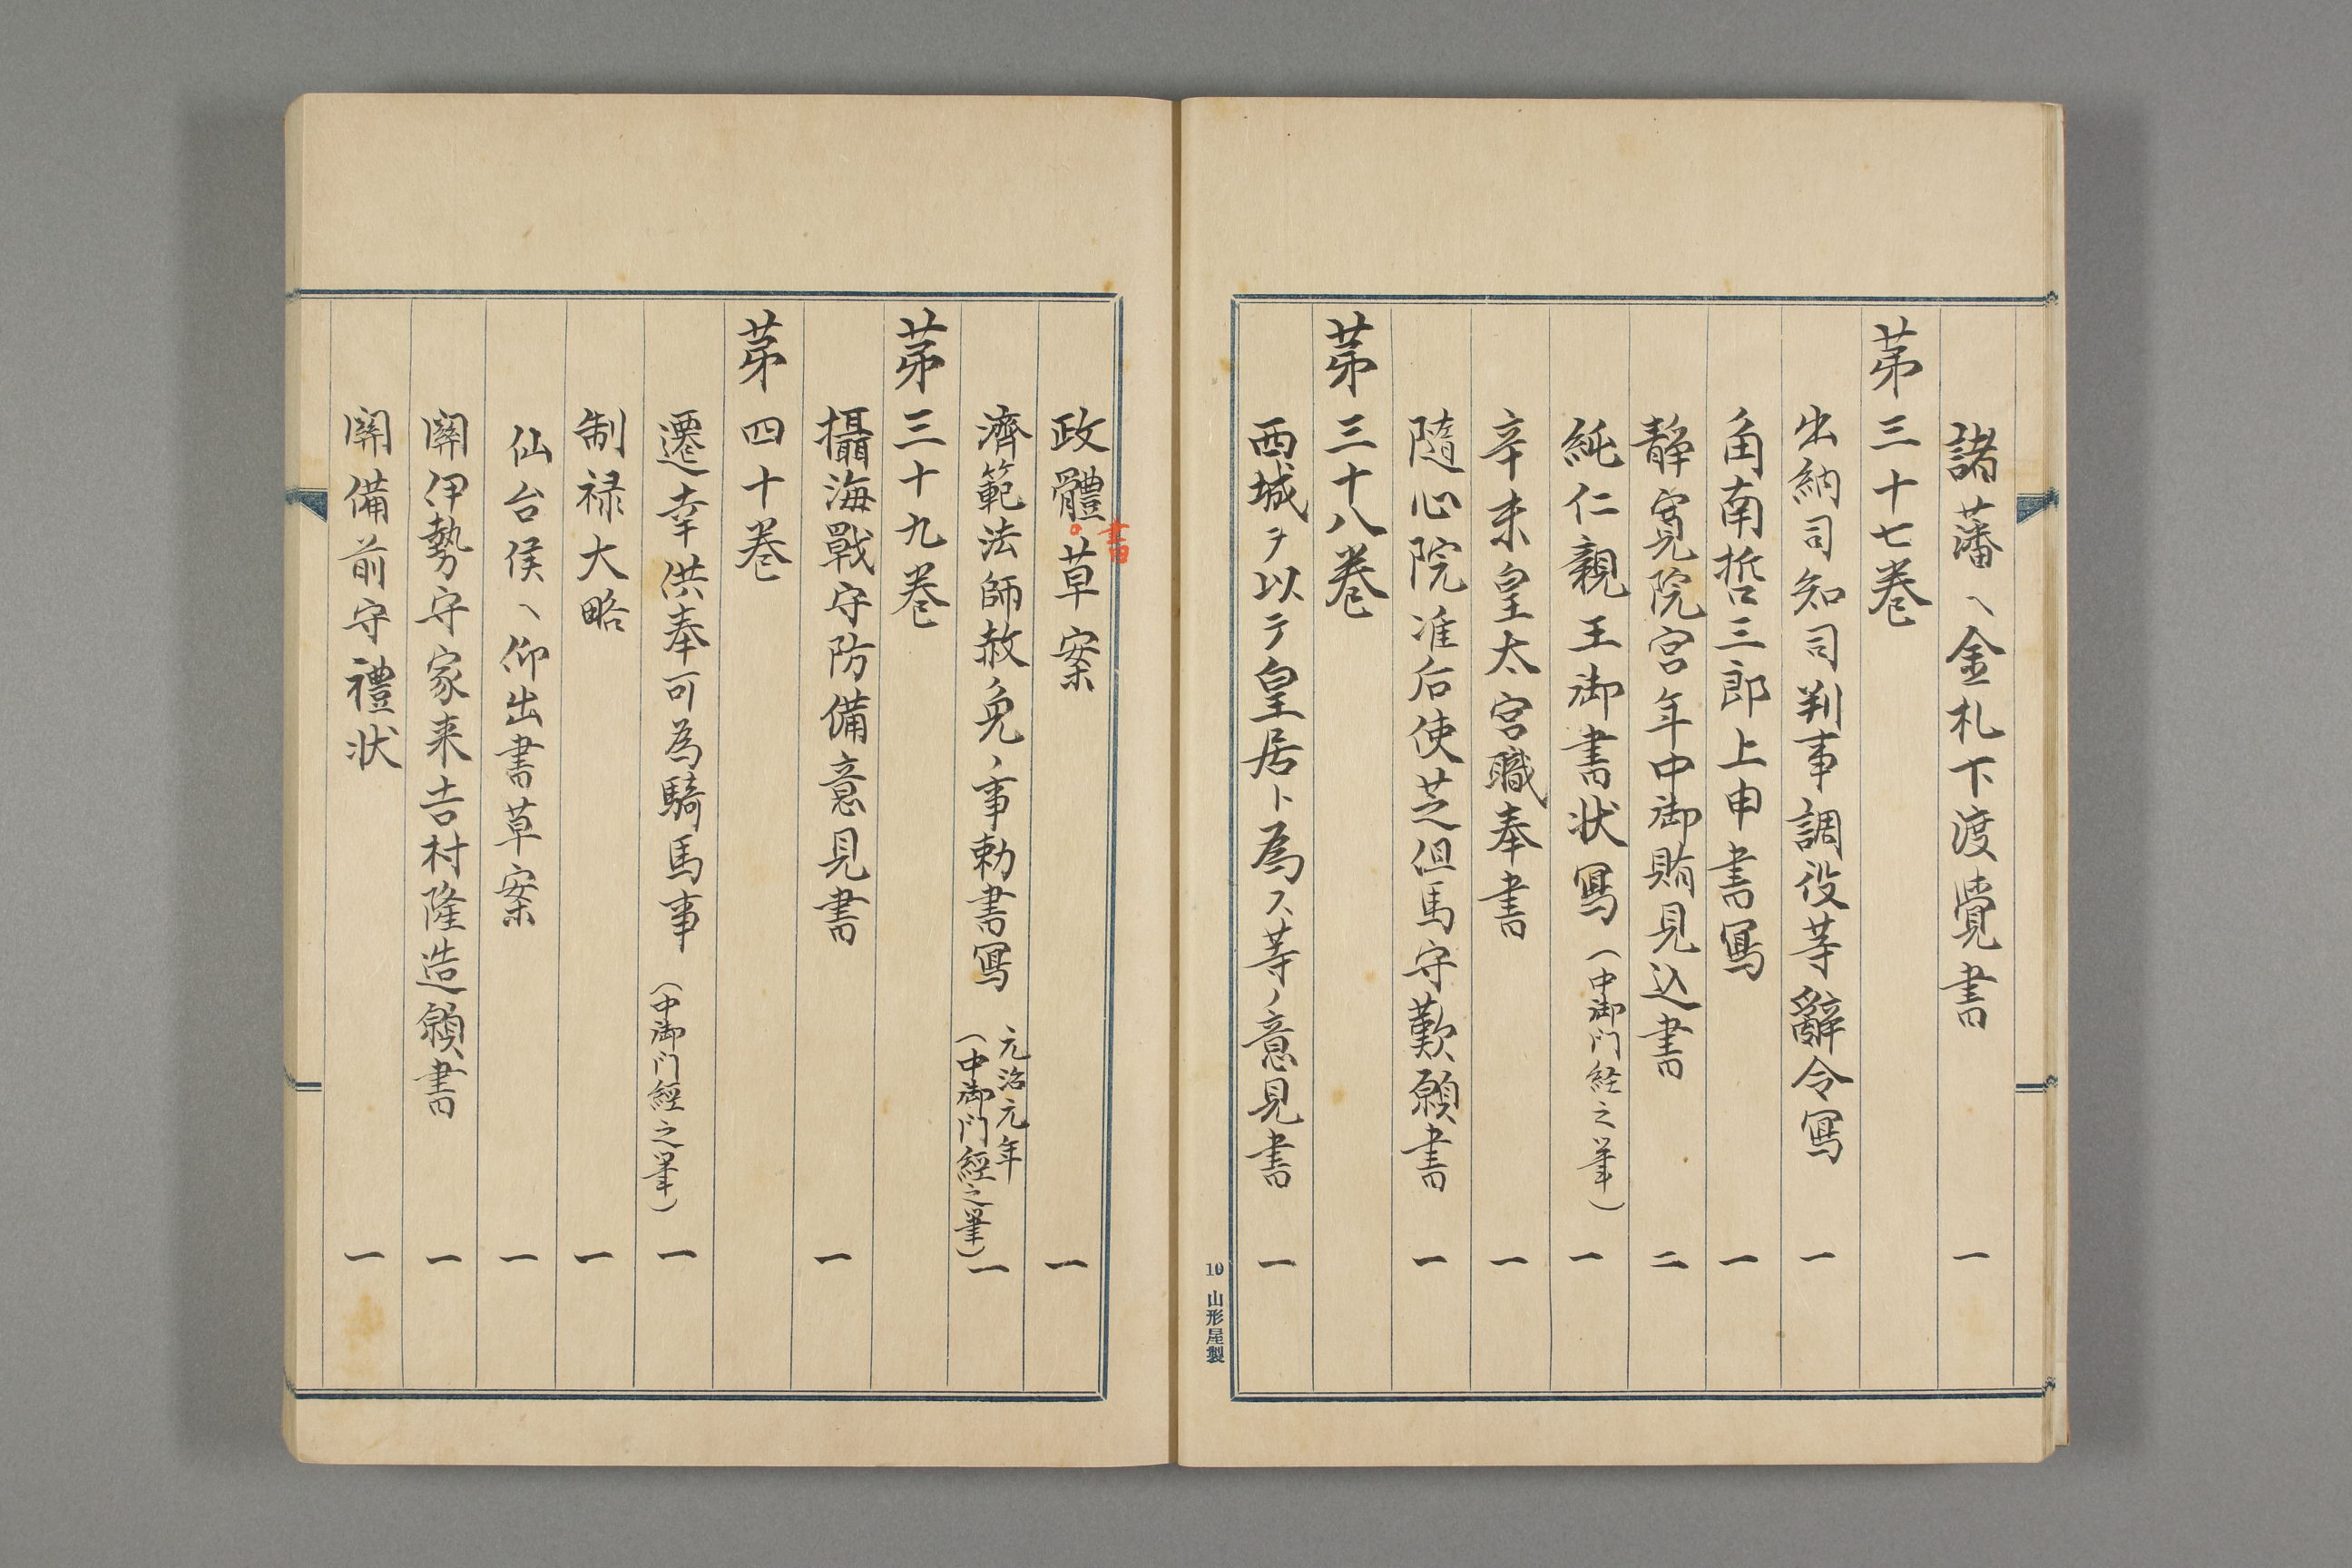 諸藩ヘ金札下渡覺書 一
第三十七巻
出納司知司判事調役等辭令寫 一
角南哲三郎上申書寫 一
靜寛院宮年中御賄見込書 二
純仁親王御書状寫（中御門経之筆） 一
辛未皇太宮職奉書 一
隨心院准后使芝但馬守歎願書 一
第三十八巻
西城ヲ以テ皇居ト為ス等ノ意見書 一
10 山形屋製
政體。草案 一
書
濟範法師赦免ノ事勅書寫 元治元年（中御門經之筆） 一
第三十九巻
攝海戰守防備意見書 一
第四十巻
遷幸供奉可為騎馬事（中御門經之筆） 一
制禄大略 一
仙台侯ヘ仰出書草案 一
関伊勢守家来吉村隆造願書 一
関備前守禮状 一